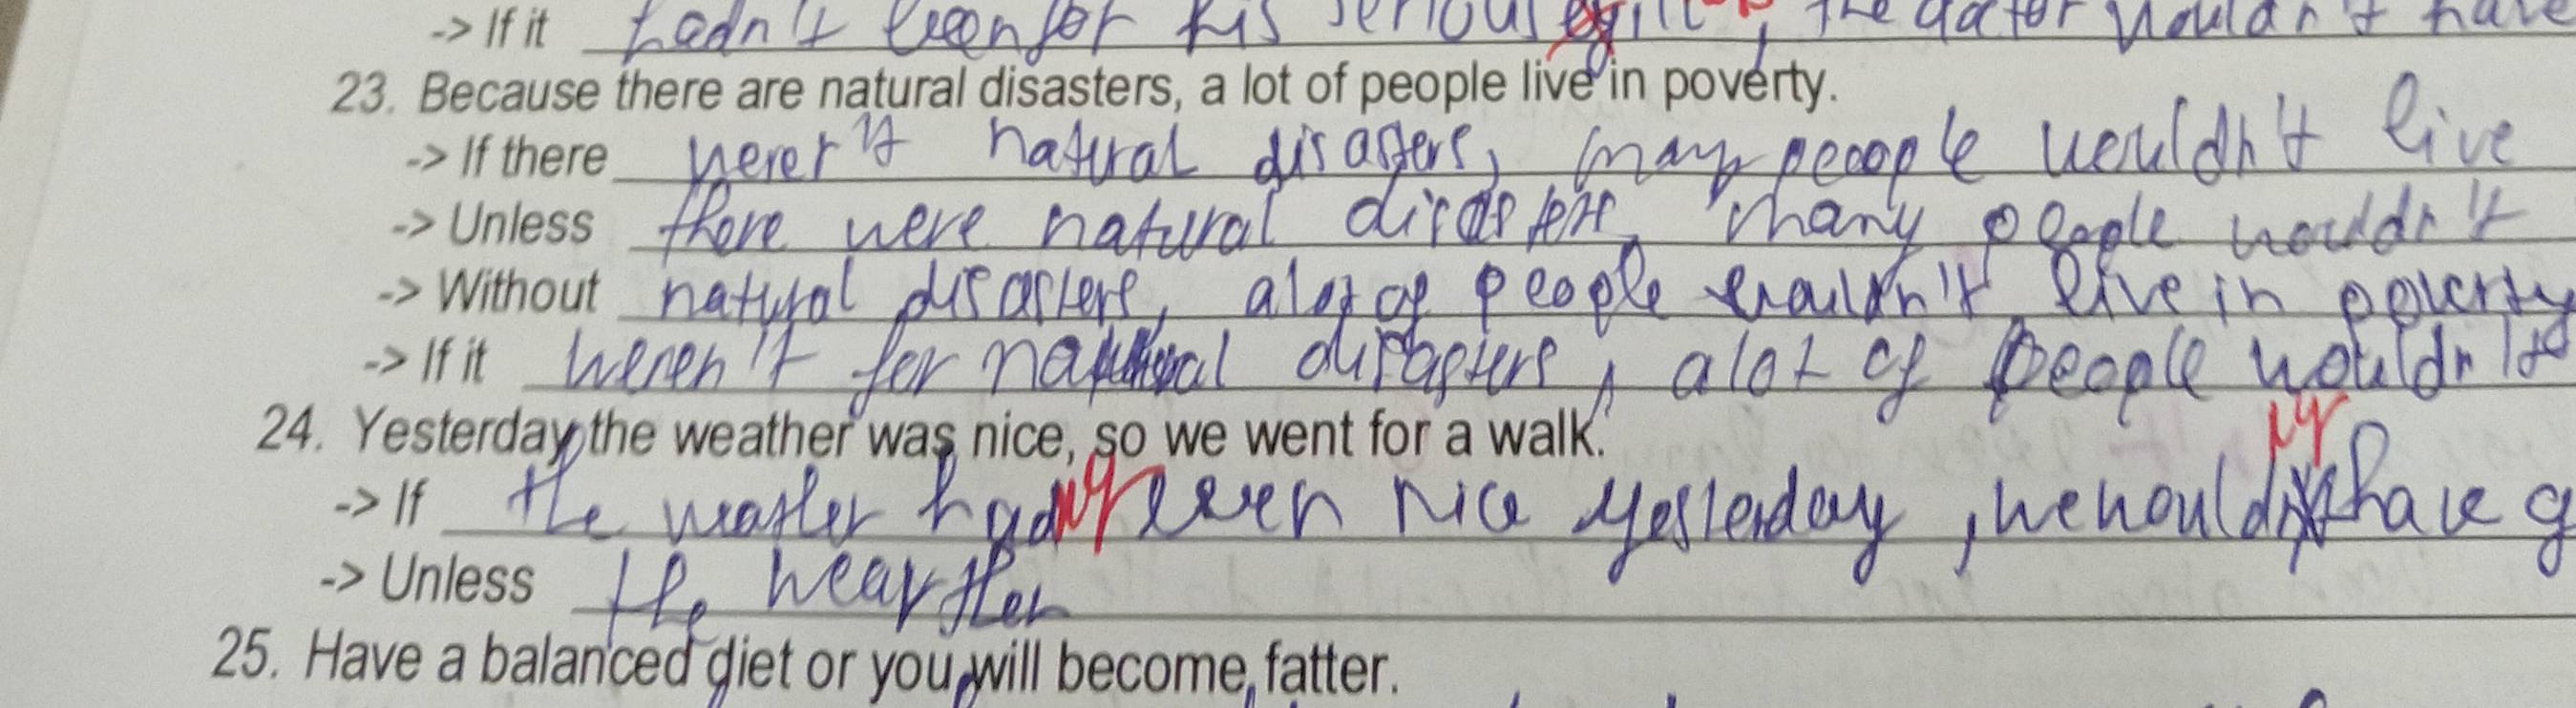 -> If it hadn't been for his serious ill, the doctor wouldn't have
23. Because there are natural disasters, a lot of people live in poverty.
-> If there weren't natural disasters, many people wouldn't live
-> Unless there were natural disasters, many people wouldn't
-> Without natural disasters, a lot of people wouldn't live in poverty
-> If it weren't for natural disasters, a lot of people wouldn't
24. Yesterday the weather was nice, so we went for a walk.
-> If the weather hadn't been nice yesterday, we wouldn't have g
-> Unless the wearther
25. Have a balanced diet or you will become fatter.